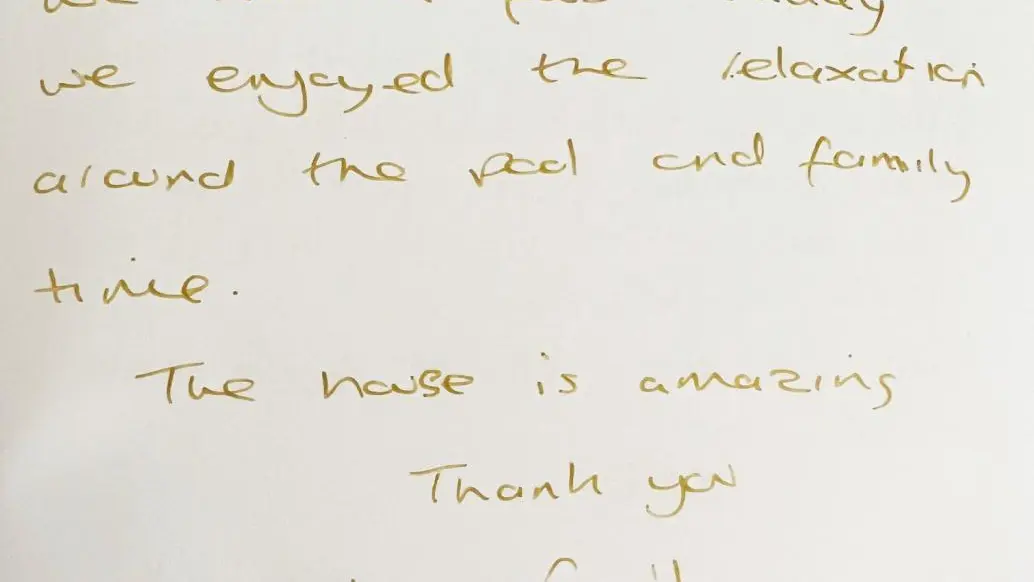 we enjoyed the relaxation
around the pool and family
time.
The house is amazing
Thank you